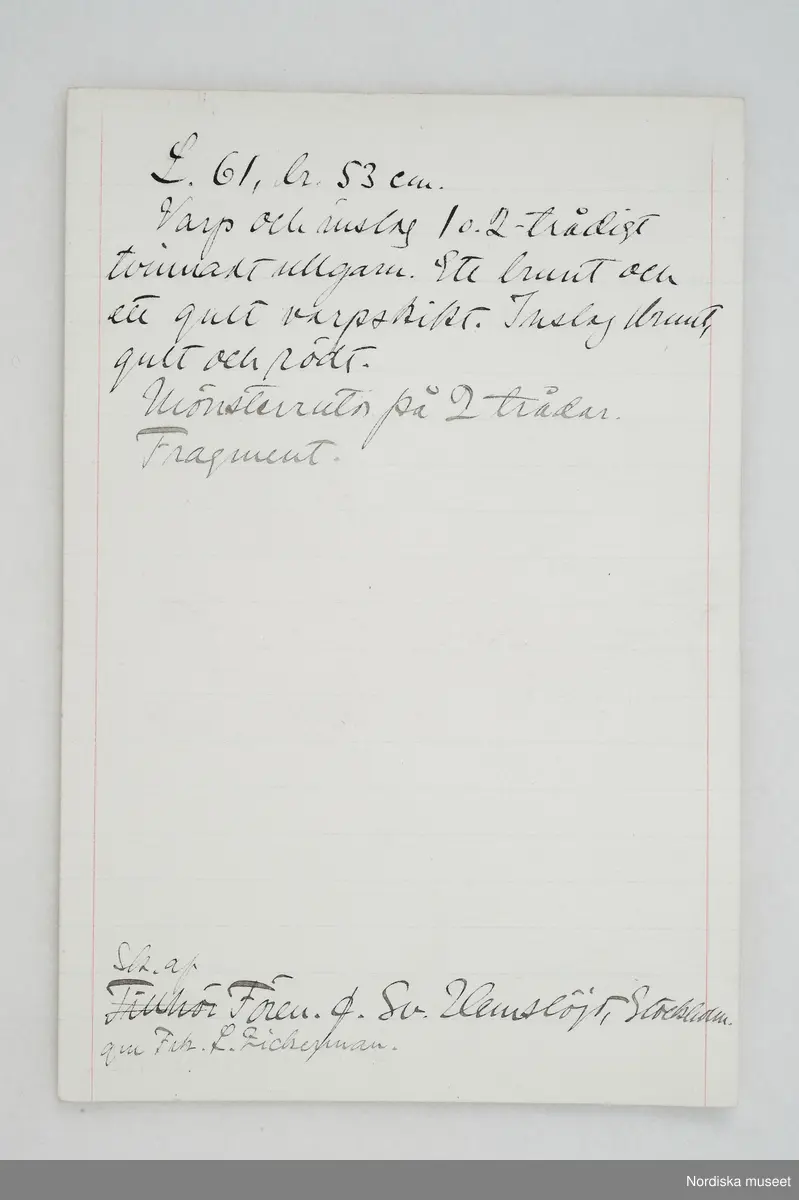 L. 61, br. 53 cm.
Varp och inslag 1 o. 2-trådigt
tvinnadt ullgarn. Ett brunt och
ett gult varpskikt. Inslag brunt,
gult och rödt.
Mönsterrutor på 2 trådar.
Fragment.
Sk. af
Tillhör Fören. f. Sv. Hemslöjd, Stockholm.
gm Frk. L. Zickerman.
Nordiska museet